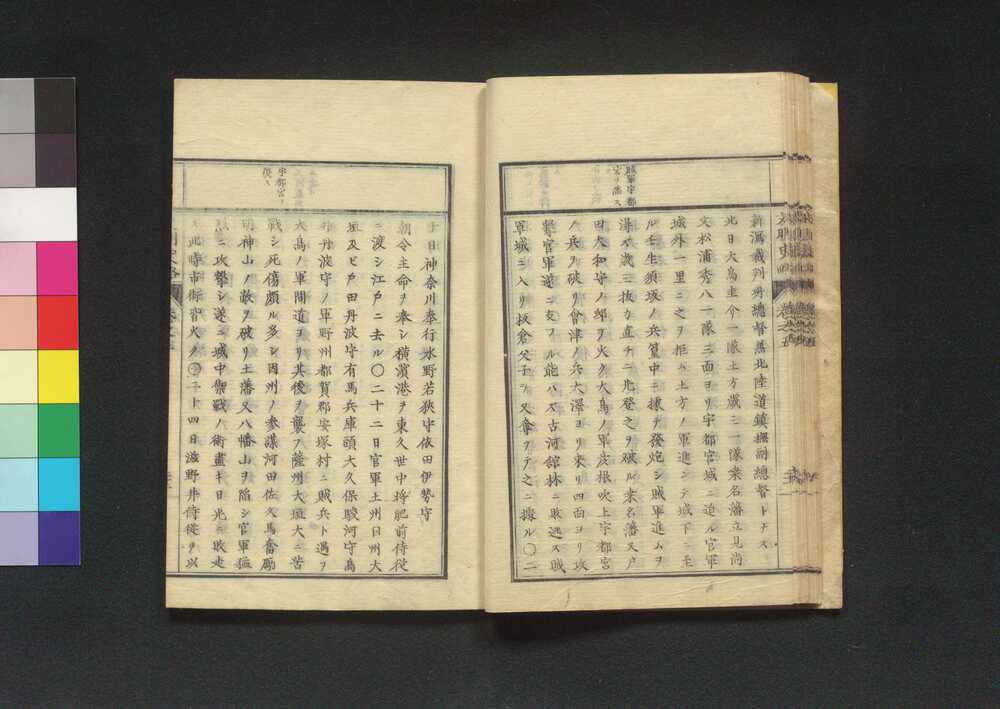 賊軍宇都
宮ヲ陥ス
新潟裁判所總督兼北陸道鎮撫副總督トナス
北日大鳥圭介一隊土方歳三一隊来名藩立見尚
文松浦秀八一隊三面ヨリ宇都宮城ニ迫ル官軍
城外一里ニ之ヲ拒ム土方ノ軍進ンテ城下ニ至
ル壬生須坂ノ兵篁中ニ據テ發炮シ賊軍進ムヲ
得ス歳三抜刀直チニ先登之ヲ破ル桒名藩又戸
田大和守ノ邸ヲ火ク大鳥ノ軍彦根吹上宇都宮
ノ兵ヲ破リ會津ノ兵大澤ヨリ来リ四面ヨリ攻
撃官軍遂ニ支フル能ハス古河舘林ニ敗退ス賊
軍城ニ入リ板倉父子ヲ又奪フテ之ニ據ル〇二
宇都宮ヲ
復ス
十日神奈川奉行水野若狭守依田伊勢守
朝令主命ヲ奉シ横濱港ヲ東久世中将肥前侍従
ニ渡シ江戸ニ去ル〇二十二日官軍土州因州大
垣及ヒ戸田丹波守有馬兵庫頭大久保駿河守鳥
井丹波守ノ軍野州都賀郡安塚村ニ賊兵ト遇フ
大鳥ノ軍間道ヨリ其後ヲ襲フ薩州大垣大ニ苦
戦シ死傷頗ル多シ因州ノ参謀河田佐久馬奮勵
明神山ノ敵ヲ破リ土藩又八幡山ヲ陥シ官軍猛
ニ攻撃シ遂ニ城中禦戦ノ術盡キ日光ニ敗走
此時市街皆火ク〇二十四日滋野井侍従ヲ以